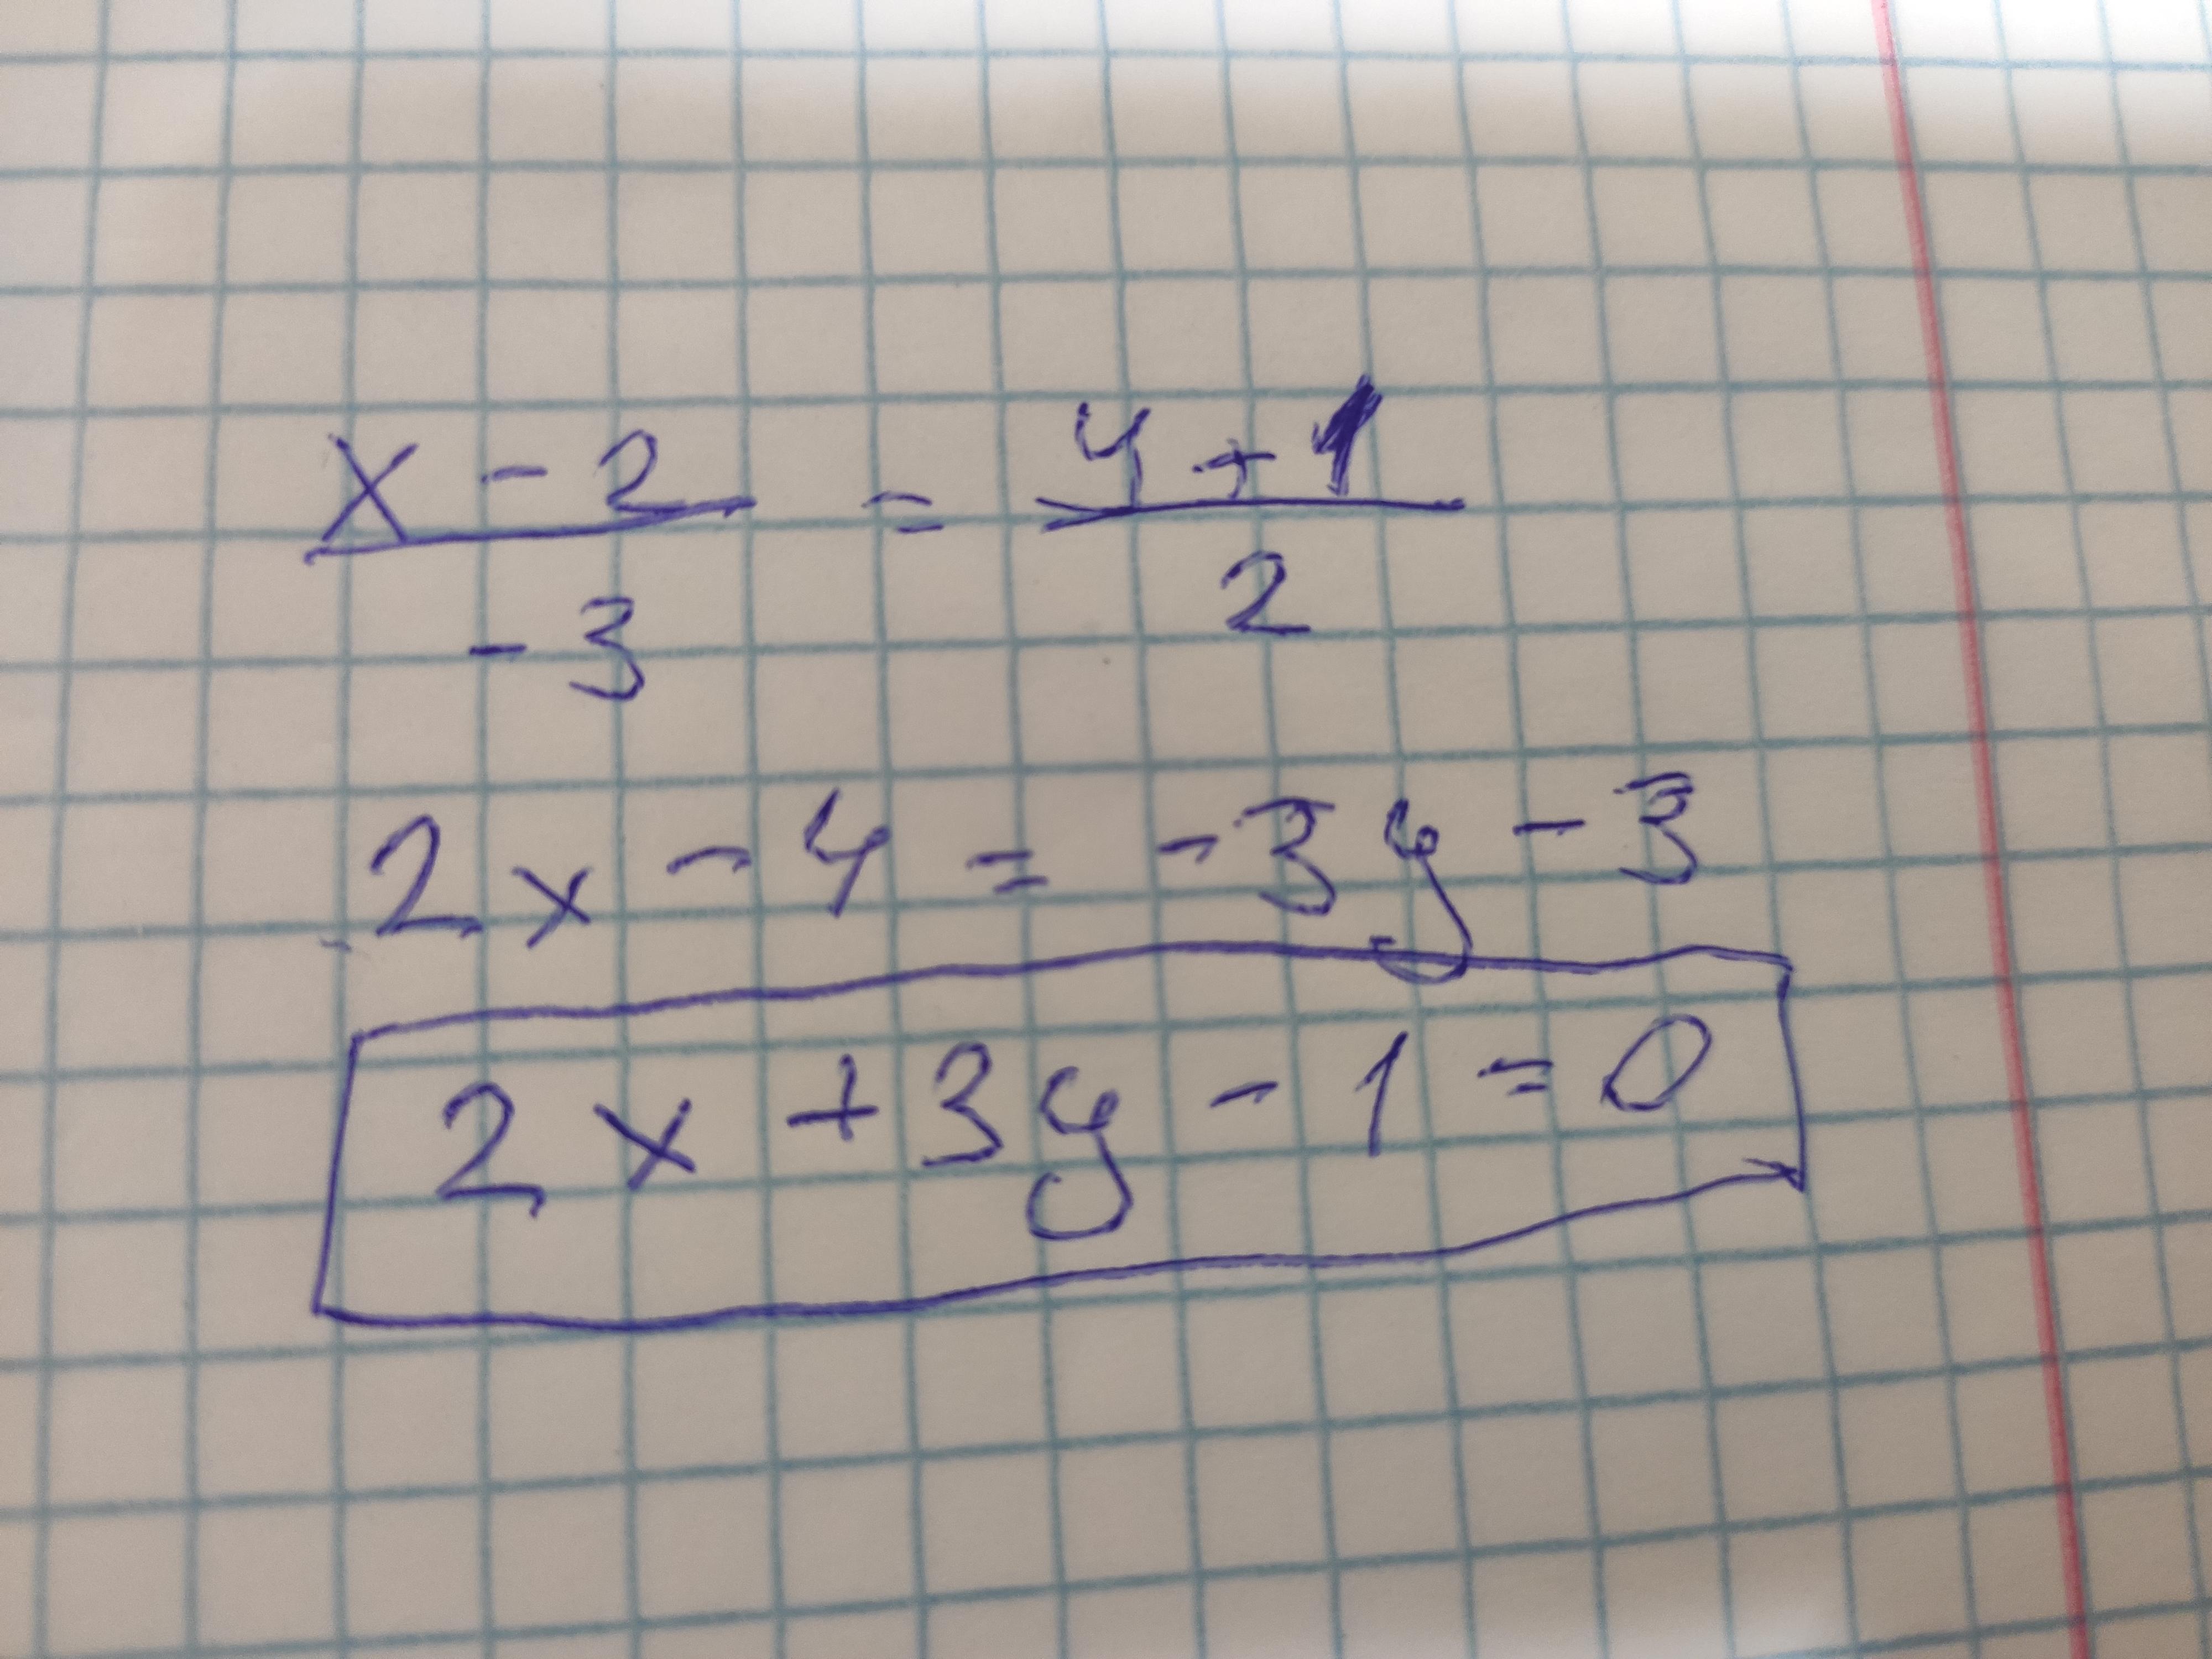 x - 2 / -3 = y + 1 / 2
2x - 4 = -3y - 3
2x + 3y - 1 = 0